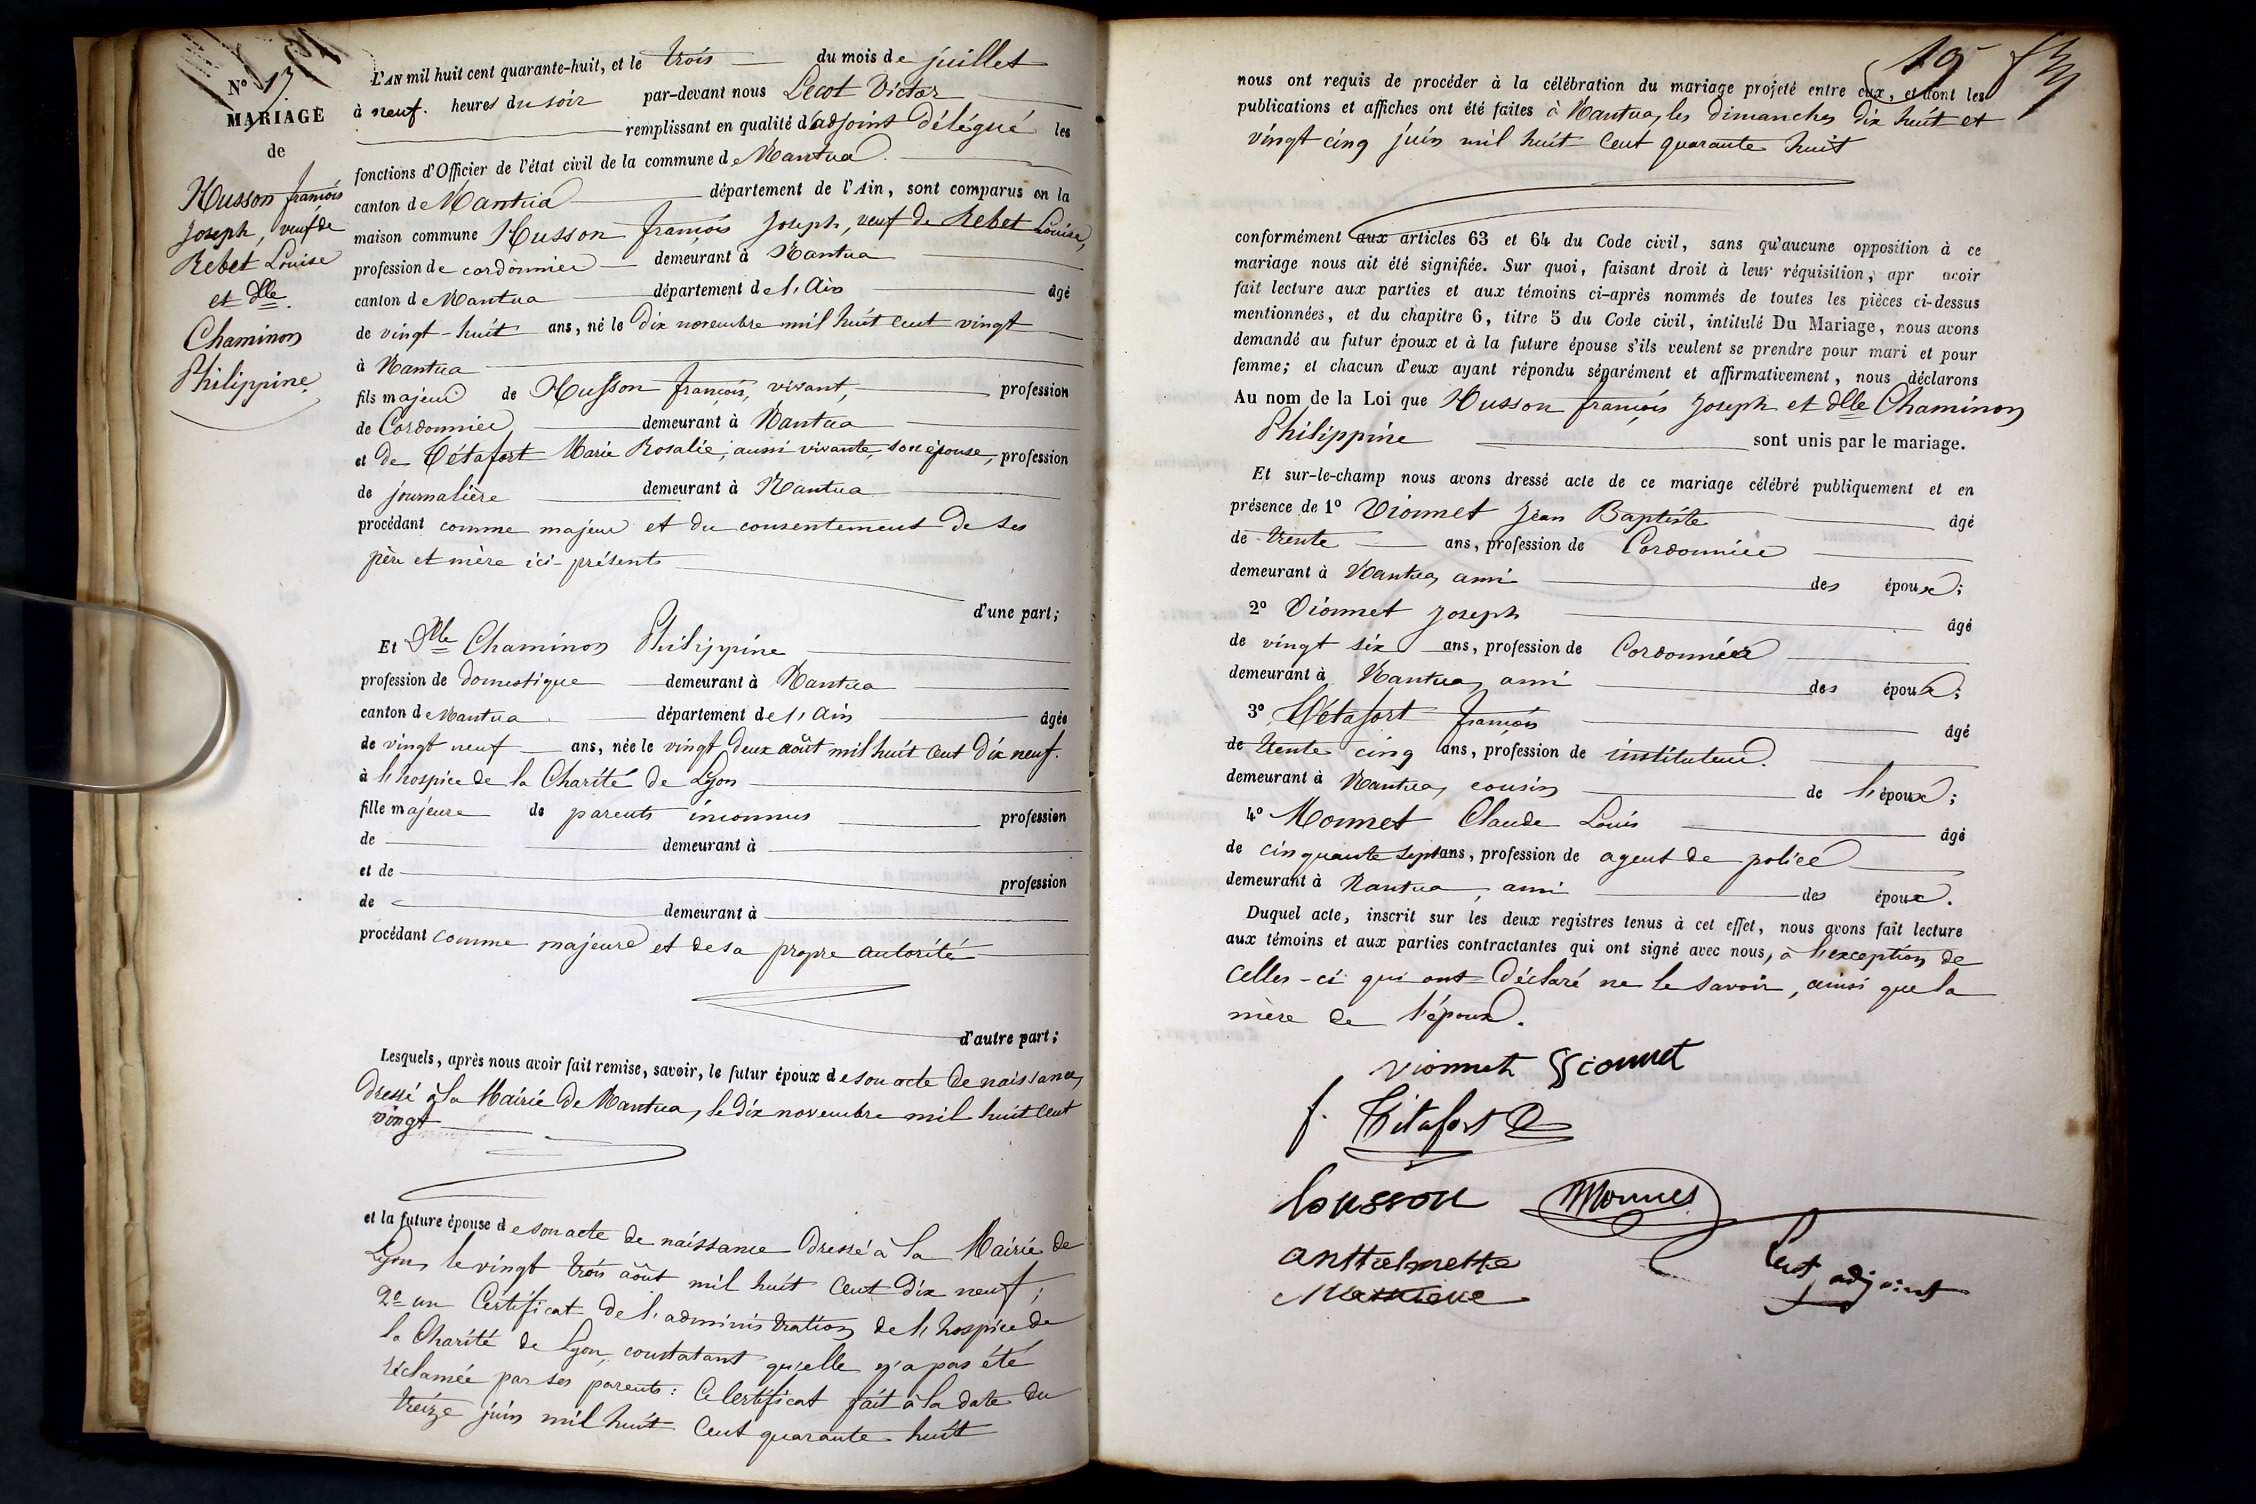 N° 17
MARIAGE
de
Husson françois
Joseph, veuf de
Rebet Louise
et dlle
Chaminon
Philippine
L'AN mil huit cent quarante-huit, et le trois du mois de juillet
à neuf heures du soir par-devant nous Lecot Victor
remplissant en qualité d'adjoint délégué les
fonctions d'Officier de l'état civil de la commune de Nantua
canton de Nantua département de l'Ain, sont comparus en la
maison commune Husson françois Joseph, veuf de Rebet Louise,
profession de cordonnier demeurant à Nantua
canton de Nantua département de l'Ain âgé
de vingt-huit ans, né le dix novembre mil huit cent vingt
à Nantua
fils majeur de Husson françois, vivant, profession
de Cordonnier demeurant à Nantua
et de Tétafort Marie Rosalie, aussi vivante, son épouse, profession
de journalière demeurant à Nantua
procédant comme majeur et du consentement de ses
père et mère ici-présents
d'une part;
Et Dlle Chaminon Philippine
profession de domestique demeurant à Nantua
canton de Nantua département de l'Ain âgée
de vingt neuf ans, née le vingt deux août mil huit cent dix neuf.
à l'hospice de la Charité de Lyon
fille majeure de parents inconnus profession
de demeurant à
et de profession
de demeurant à
procédant comme majeure et de sa propre autorité
d'autre part;
Lesquels, après nous avoir fait remise, savoir, le futur époux de son acte de naissance,
dressé à la Mairie de Nantua, le dix novembre mil huit cent
vingt
et la future épouse de son acte de naissance dressé à la Mairie de
Lyon, le vingt trois août mil huit cent dix neuf;
2° un Certificat de l'administration de l'hospice de
la Charité de Lyon, constatant qu'elle n'a pas été
réclamée par ses parents: Ce Certificat fait à la date du
treize juin mil huit cent quarante-huit
19
nous ont requis de procéder à la célébration du mariage projeté entre eux, et dont les
publications et affiches ont été faites à Nantua, les dimanches dix huit et
vingt cinq juin mil huit cent quarante huit
conformément aux articles 63 et 64 du Code civil, sans qu'aucune opposition à ce
mariage nous ait été signifiée. Sur quoi, faisant droit à leur réquisition, apr avoir
fait lecture aux parties et aux témoins ci-après nommés de toutes les pièces ci-dessus
mentionnées, et du chapitre 6, titre 5 du Code civil, intitulé Du Mariage, nous avons
demandé au futur époux et à la future épouse s'ils veulent se prendre pour mari et pour
femme; et chacun d'eux ayant répondu séparément et affirmativement, nous déclarons
Au nom de la Loi que Husson françois Joseph et dlle Chaminon
Philippine sont unis par le mariage.
Et sur-le-champ nous avons dressé acte de ce mariage célébré publiquement et en
présence de 1° Vionnet Jean Baptiste âgé
de trente ans, profession de Cordonnier
demeurant à Nantua, ami des époux;
2° Vionnet Joseph âgé
de vingt six ans, profession de Cordonnier
demeurant à Nantua, ami des époux;
3° Tétafort françois âgé
de trente cinq ans, profession de instituteur.
demeurant à Nantua, cousin de l'époux;
4° Monnet Claude Louis âgé
de cinquante sept ans, profession de agent de police
demeurant à Nantua, ami des époux.
Duquel acte, inscrit sur les deux registres tenus à cet effet, nous avons fait lecture
aux témoins et aux parties contractantes qui ont signé avec nous, à l'exception de
celles-ci qui ont déclaré ne le savoir, ainsi que la
mère de l'époux.
vionnet Vionnet
f. Tétafort
housson Monnet
anthelmette
Lecot adjoint